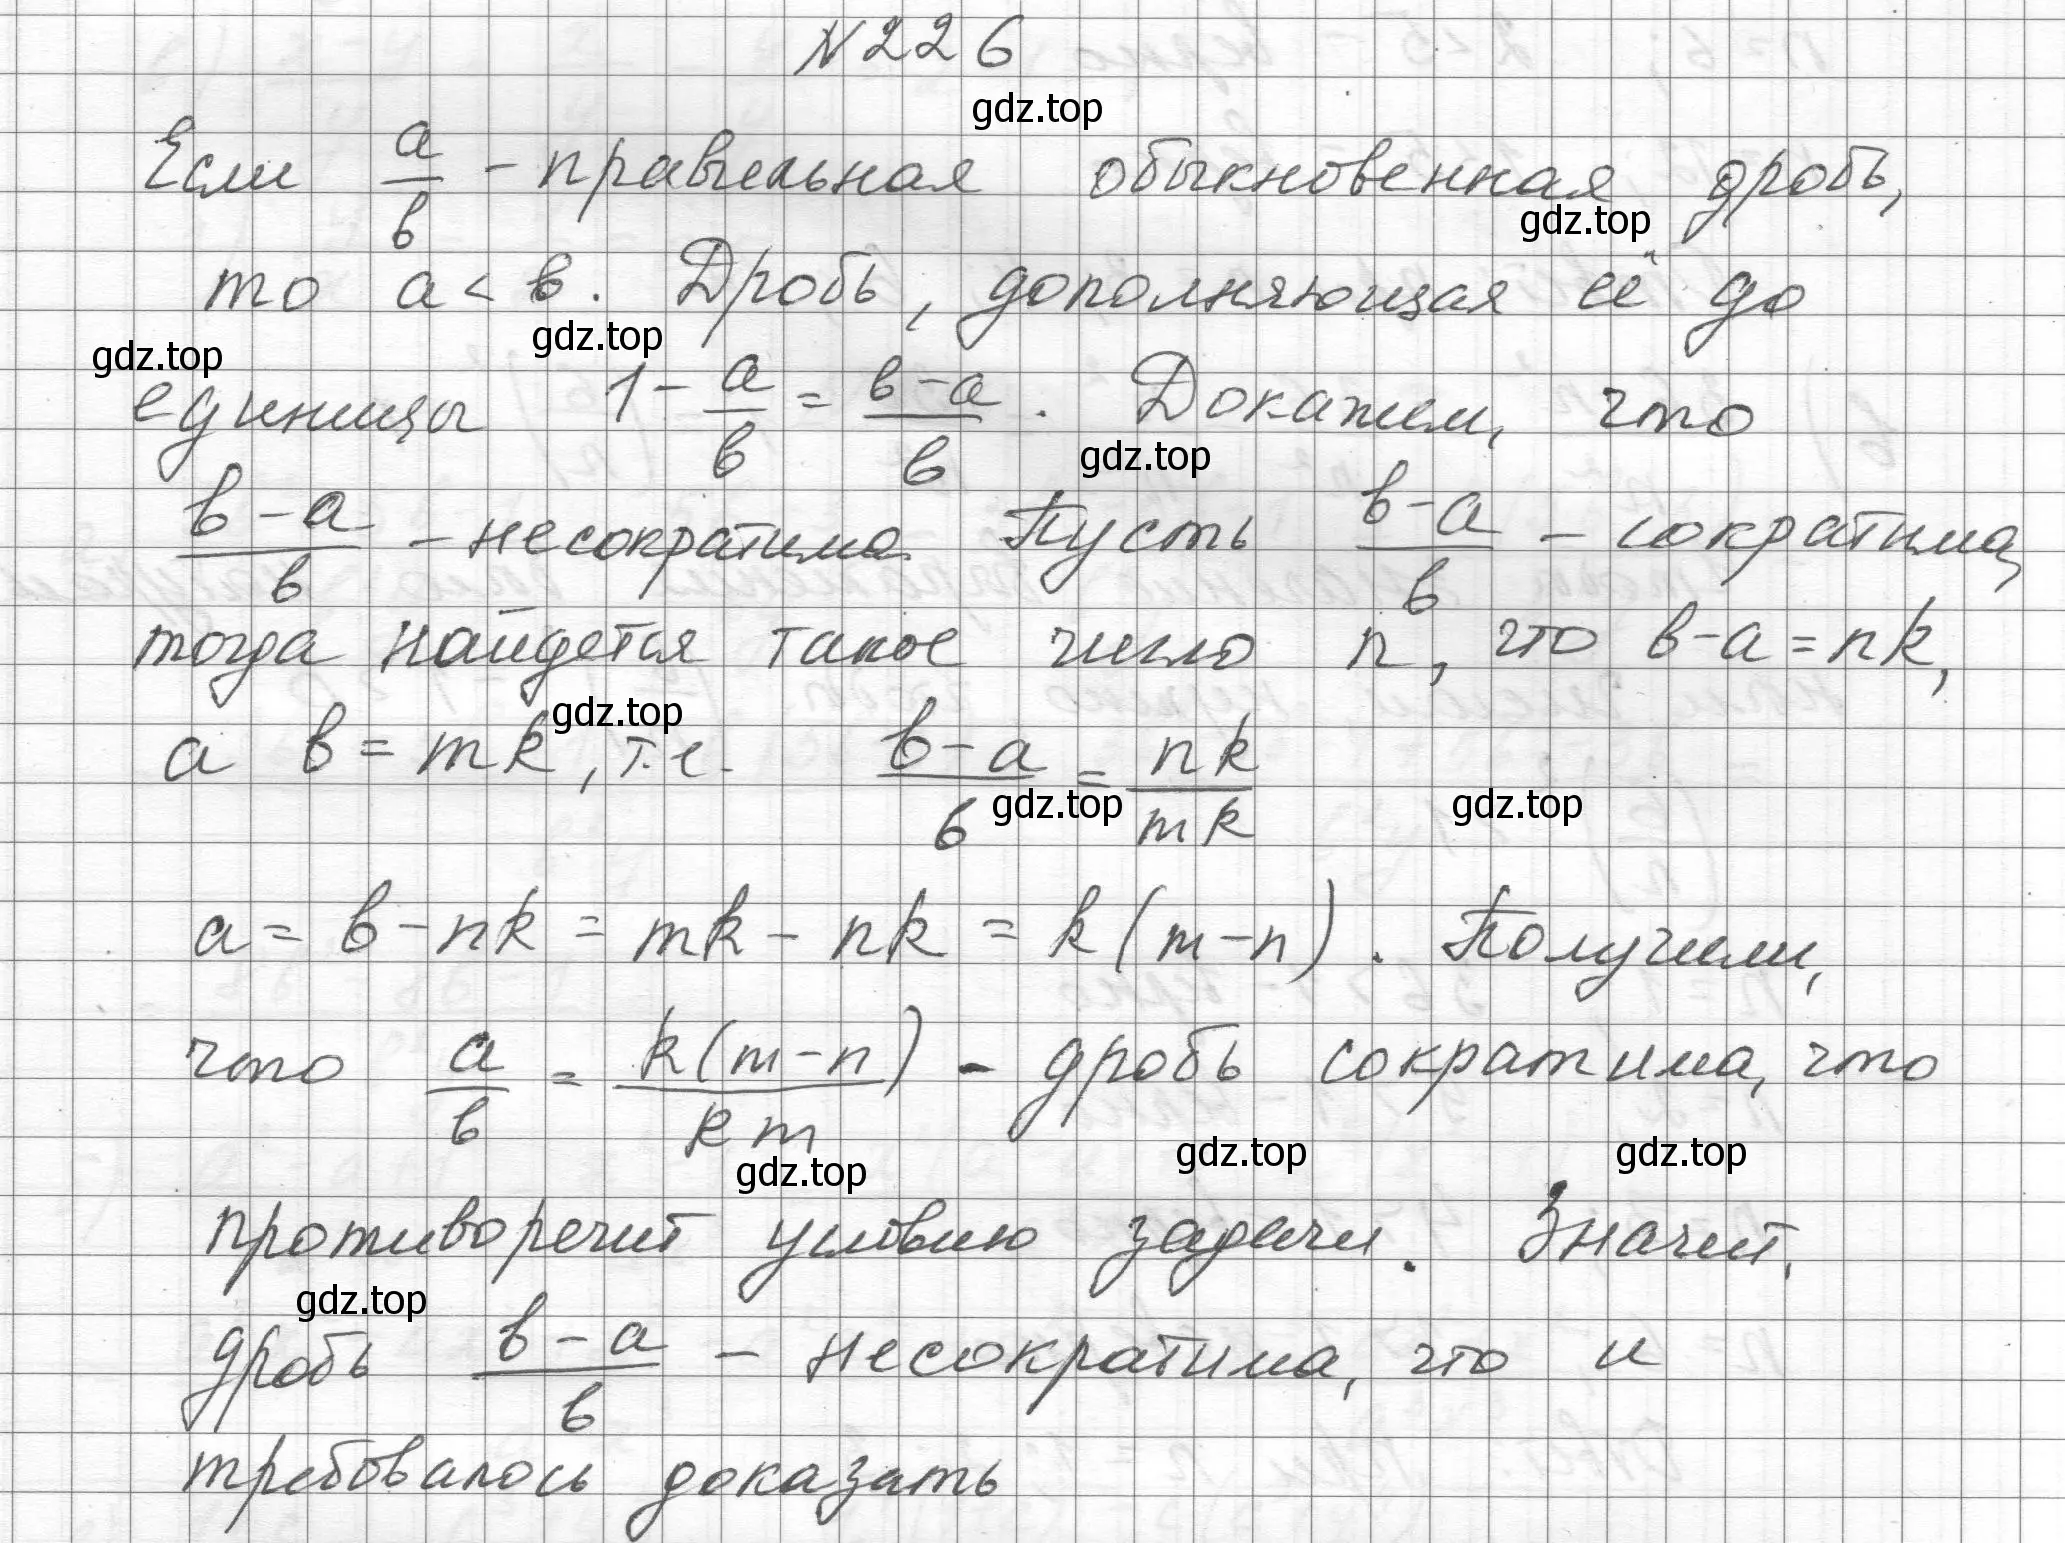 №226
gdz.top
Если a/в - правильная обыкновенная дробь,
gdz.top
то a < в. Дробь, дополняющая её до
gdz.top gdz.top
единицы 1 - a/в = (в-a)/в. Докажем, что
gdz.top
(в-a)/в - несократима. Пусть (в-a)/в - сократима,
тогда найдется такое число n, что в-a = nk,
gdz.top
a в = mk, т.е. (в-a)/в = nk/mk
gdz.top gdz.top
a = в - nk = mk - nk = k(m-n). Получили,
что a/в = k(m-n)/km - дробь сократима, что
gdz.top gdz.top gdz.top
противоречит условию задачи. Значит,
gdz.top
дробь (в-a)/в - несократима, что и
требовалось доказать